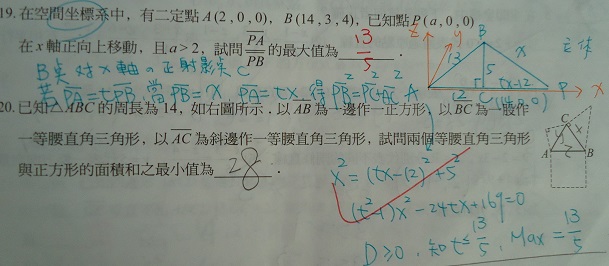 19.在空間坐標系中，有二定點 A(2,0,0)，B(14,3,4)，已知點 P(a,0,0)
在 x 軸正向上移動，且 a>2，試問 PA/PB 的最大值為 13/5 .
B點對x軸の正射影点C
若PA=tPB,當PB=x, PA=tx,得PB²=PC²+BC²
z y B x
13 5 tx-12
A 12 C(14,0,0) P x
20.已知△ABC 的周長為 14，如右圖所示．以 AB 為一邊作一正方形，以 BC 為一股作
一等腰直角三角形，以 AC 為斜邊作一等腰直角三角形，試問兩個等腰直角三角形
與正方形的面積和之最小值為 28 .
C
A B
x²=(tx-12)²+5²
(t²-1)x²-24tx+169=0
D≥0, 知t≤13/5, Max=13/5